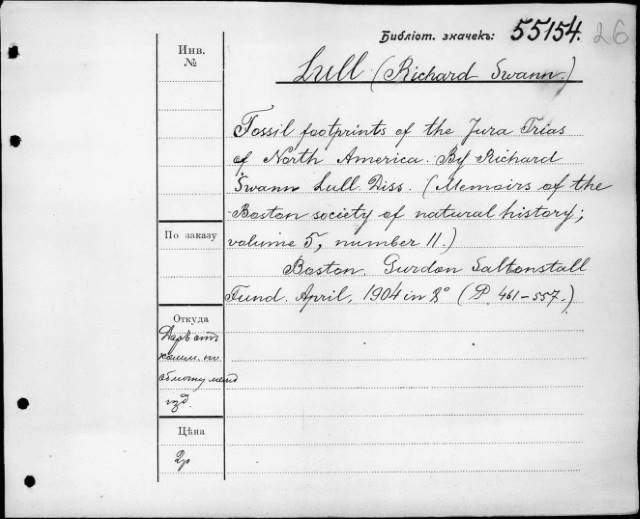 Библіот. значекъ: 55154. 26
Инв.
№
Lull (Richard Swann.)
Fossil footprints of the Jura Trias
of North America. By Richard
Swann Lull. Diss. (Memoirs of the
Boston society of natural history;
volume 5, number 11.)
Boston. Gurdon Saltonstall
Fund. April, 1904 in 8° (P. 461-557.)
По заказу
Откуда
Даръ отъ
комм. по
обмѣну межд
изд.
Цѣна
2р